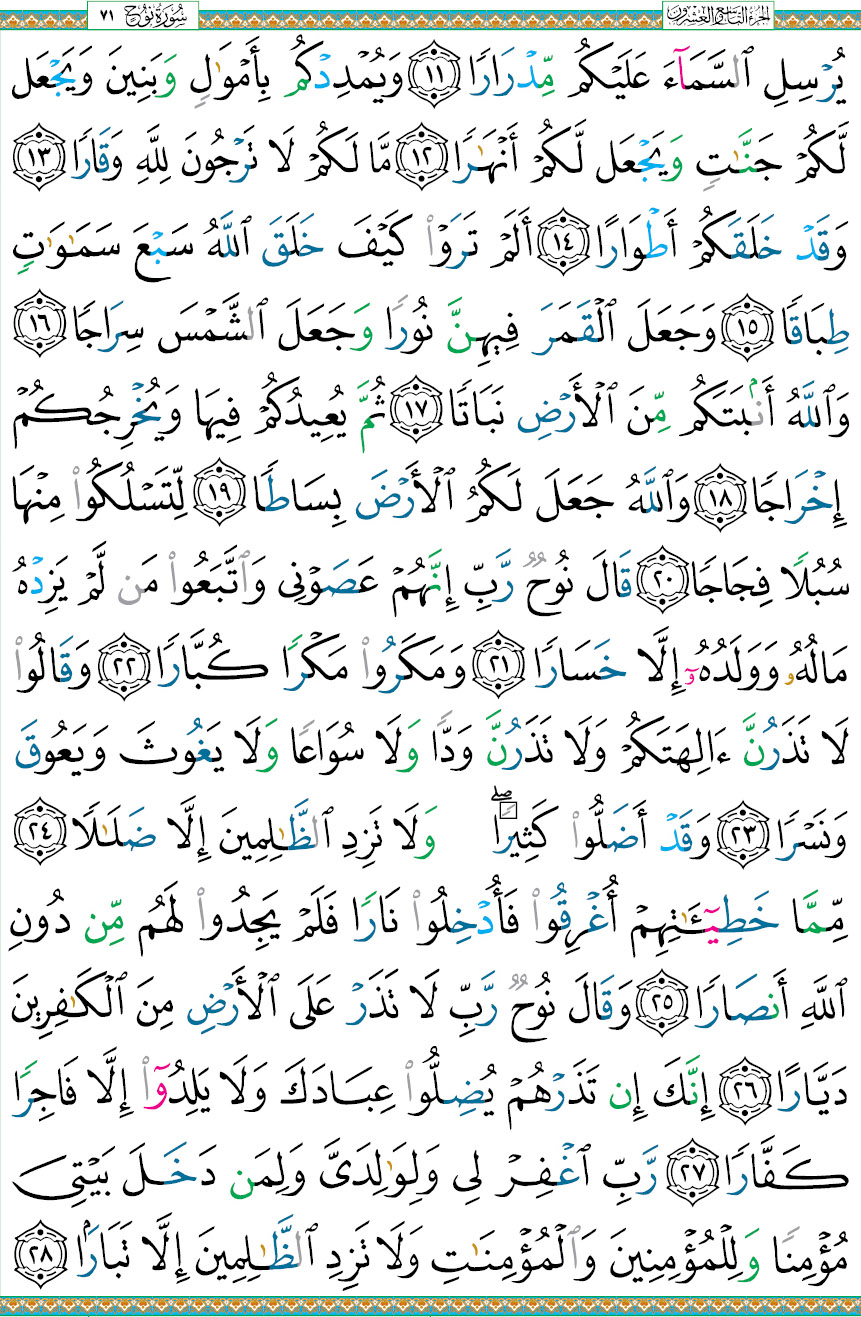 الجزء التاسع والعشرون سُورَةُ نُوح ٧١
يُرْسِلِ ٱلسَّمَآءَ عَلَيْكُم مِّدْرَارًا ١١ وَيُمْدِدْكُم بِأَمْوَٰلٍ وَبَنِينَ وَيَجْعَل
لَّكُمْ جَنَّٰتٍ وَيَجْعَل لَّكُمْ أَنْهَٰرًا ١٢ مَّا لَكُمْ لَا تَرْجُونَ لِلَّهِ وَقَارًا ١٣
وَقَدْ خَلَقَكُمْ أَطْوَارًا ١٤ أَلَمْ تَرَوْا۟ كَيْفَ خَلَقَ ٱللَّهُ سَبْعَ سَمَٰوَٰتٍ
طِبَاقًا ١٥ وَجَعَلَ ٱلْقَمَرَ فِيهِنَّ نُورًا وَجَعَلَ ٱلشَّمْسَ سِرَاجًا ١٦
وَٱللَّهُ أَنۢبَتَكُم مِّنَ ٱلْأَرْضِ نَبَاتًا ١٧ ثُمَّ يُعِيدُكُمْ فِيهَا وَيُخْرِجُكُمْ
إِخْرَاجًا ١٨ وَٱللَّهُ جَعَلَ لَكُمُ ٱلْأَرْضَ بِسَاطًا ١٩ لِّتَسْلُكُوا۟ مِنْهَا
سُبُلًا فِجَاجًا ٢٠ قَالَ نُوحٌ رَّبِّ إِنَّهُمْ عَصَوْنِى وَٱتَّبَعُوا۟ مَن لَّمْ يَزِدْهُ
مَالُهُۥ وَوَلَدُهُۥٓ إِلَّا خَسَارًا ٢١ وَمَكَرُوا۟ مَكْرًا كُبَّارًا ٢٢ وَقَالُوا۟
لَا تَذَرُنَّ ءَالِهَتَكُمْ وَلَا تَذَرُنَّ وَدًّا وَلَا سُوَاعًا وَلَا يَغُوثَ وَيَعُوقَ
وَنَسْرًا ٢٣ وَقَدْ أَضَلُّوا۟ كَثِيرًا ۖ وَلَا تَزِدِ ٱلظَّٰلِمِينَ إِلَّا ضَلَٰلًا ٢٤
مِّمَّا خَطِيٓـَٰٔتِهِمْ أُغْرِقُوا۟ فَأُدْخِلُوا۟ نَارًا فَلَمْ يَجِدُوا۟ لَهُم مِّن دُونِ
ٱللَّهِ أَنصَارًا ٢٥ وَقَالَ نُوحٌ رَّبِّ لَا تَذَرْ عَلَى ٱلْأَرْضِ مِنَ ٱلْكَٰفِرِينَ
دَيَّارًا ٢٦ إِنَّكَ إِن تَذَرْهُمْ يُضِلُّوا۟ عِبَادَكَ وَلَا يَلِدُوٓا۟ إِلَّا فَاجِرًا
كَفَّارًا ٢٧ رَّبِّ ٱغْفِرْ لِى وَلِوَٰلِدَىَّ وَلِمَن دَخَلَ بَيْتِىَ
مُؤْمِنًا وَلِلْمُؤْمِنِينَ وَٱلْمُؤْمِنَٰتِ وَلَا تَزِدِ ٱلظَّٰلِمِينَ إِلَّا تَبَارًۢا ٢٨